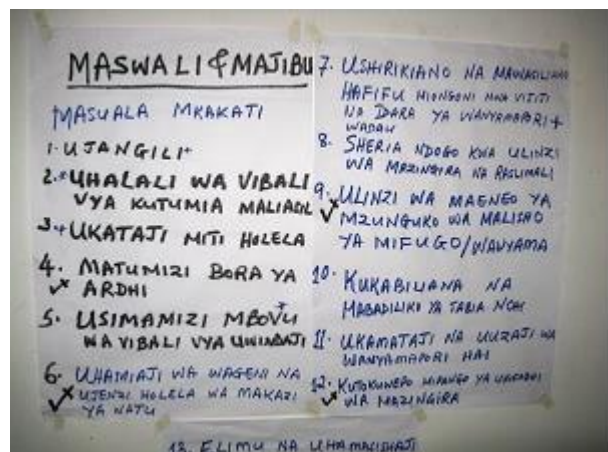 MASWALI & MAJIBU
MASUALA MKAKATI
1. UJANGILI+
2.+ UHALALI WA VIBALI
VYA KUTUMIA MALIASIL
3.+ UKATAJI MITI HOLELA
4. MATUMIZI BORA YA
ARDHI
5. USIMAMIZI MBOVU
WA VIBALI VYA UWINDAJI
6. UHAMIAJI WA WAGENI NA
UJENZI HOLELA WA MAKAZI
YA WATU
7. USHIRIKIANO NA MAWASILIANO
HAFIFU MIONGONI MWA VIJIJI
NA IDARA YA WANYAMAPORI +
WADAU
8. SHERIA NDOGO KWA ULINZI
WA MAZINGIRA NA RASLIMALI
9. ULINZI WA MAENEO YA
MZUNGUKO WA MALISHO
YA MIFUGO/WANYAMA
10. KUKABILIANA NA
MABADILIKO YA TABIA NCHI
11. UKAMATAJI NA UUZAJI WA
WANYAMAPORI HAI
12. KUTOKUWEPO MIPANGO YA
WA MAZINGIRA
13. ELIMU NA UHAMASISHAJI